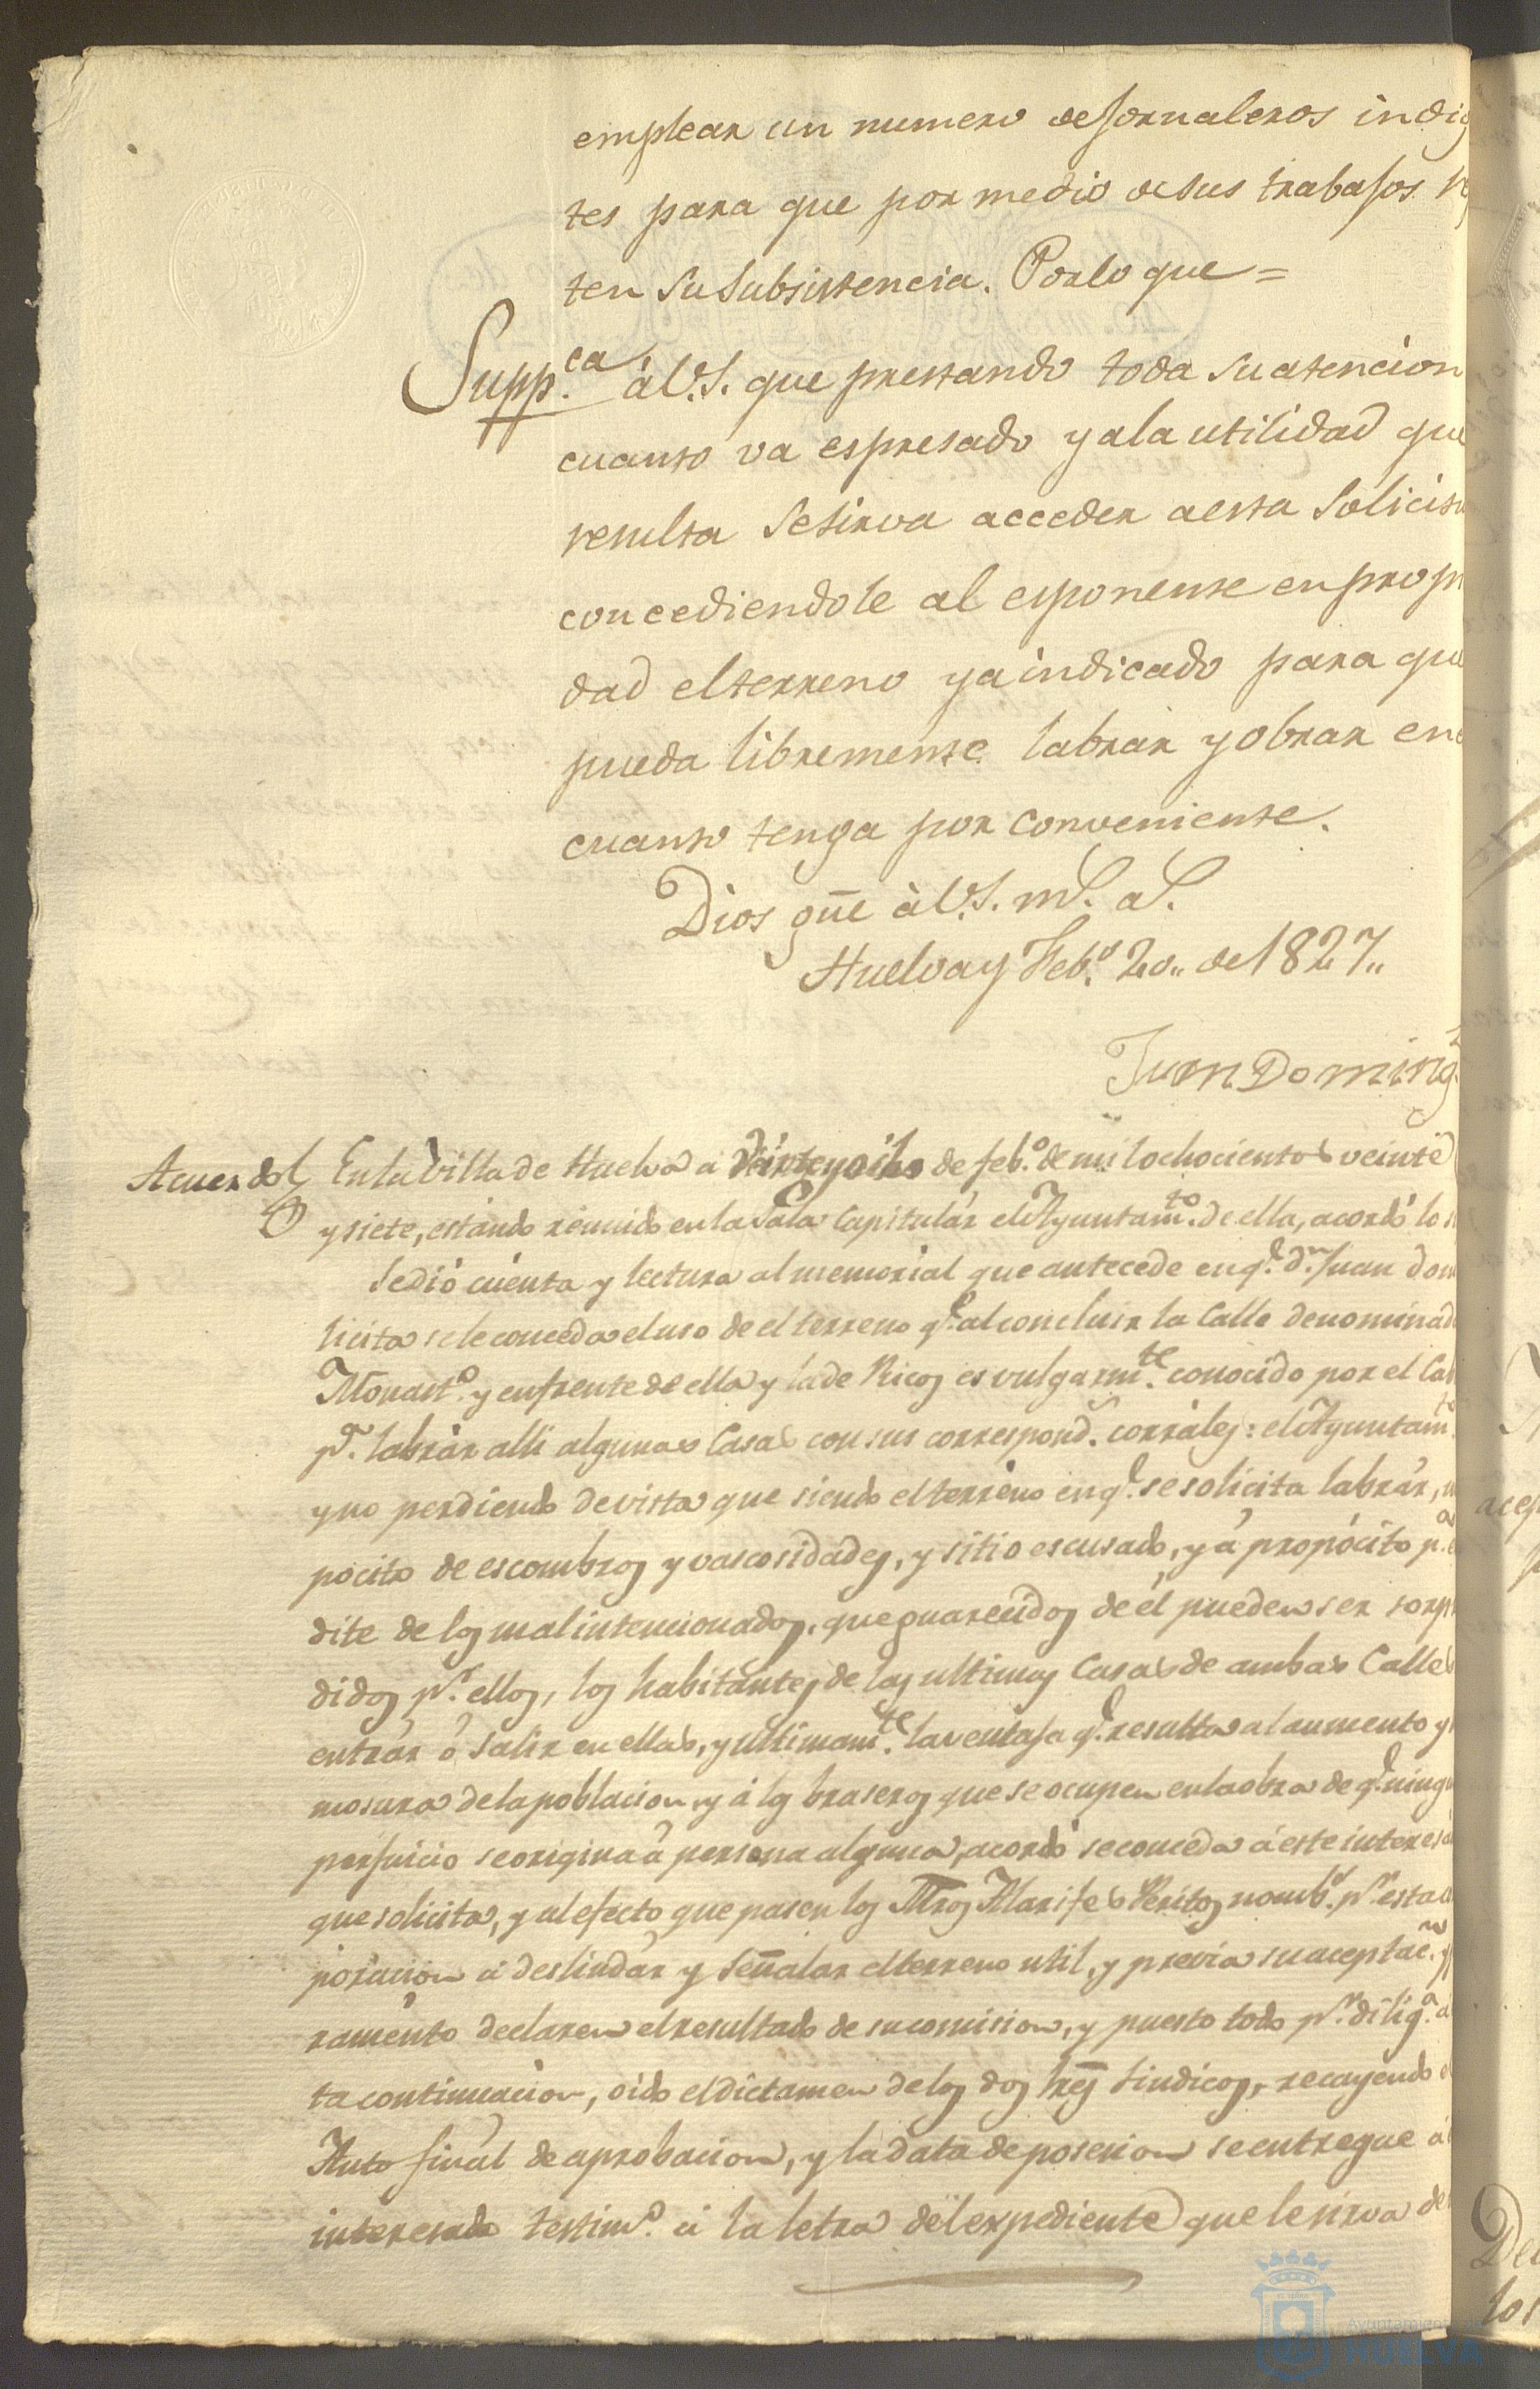 emplear un numero de Jornaleros indig
tes para que por medio de sus trabajos
ten su subsistencia. Por lo que =
Supp.ca à V.S. que prestando toda su atencion
cuanto va espresado y a la utilidad que
resulta se sirva acceder a esta solicitu
concediendole al esponente en propi
dad el terreno ya indicado para que
pueda libremente labrar y obrar en e
cuanto tenga por conveniente.
Dios gūe à V.S. mS. aS.
Huelva y Feb.o 20,, de 1827,,
Juan Doming
Acuerdo En la Villa de Huelva a veinte y ocho de feb.o de mil ochocientos veinte
y siete, estando reunido en la Sala Capitulár el Ayuntam.to de ella, acordó lo
Se dió cuenta y lectura al memorial que antecede en q.e d.n Juan dom
licita se le conceda el uso de el terreno q.e al concluir la Calle denominad
Monast.o y enfrente de ella y la de Ricos es vulgarm.te conocido por el Ca
p.a labrár alli algunas Casas con sus correspond.s corráles: el Ayuntam.to
y no perdiendo de vista que siendo el terreno en q.e se solicita labrár,
pocito de escombros y vascosidades, y sitio escusado, y á propócito p.a
dite de los mal intencionados, que guarecidos de él pueden ser sorp
didos p.r ellos, los habitantes de las ultimas Casas de ambas Calles
entrár ó salir en ellas, y ultimam.te la ventaja q.e resulta al aumento y
mosura de la poblacion, y á los braseros que se ocupen en la obra de q.e ningu
perjuicio se origina á persona alguna, acordó se conceda á este interesa
que solicita, y al efecto que pasen los Mros Alarifes Peritos nomb.s p.r esta
poracion á deslindár y señalar el terreno util, y previa su aceptac.n y
ramento declaren el resultado de su comision, y puesto todo p.r dilig.a á
ta continuacion, oido el dictamen de los dos Sres Sindicos, recayendo
Auto finál de aprobacion, y la data de posesion se entregue á
interesado testim.o á la letra del expediente que le sirva de
Ayuntamiento de
HUELVA